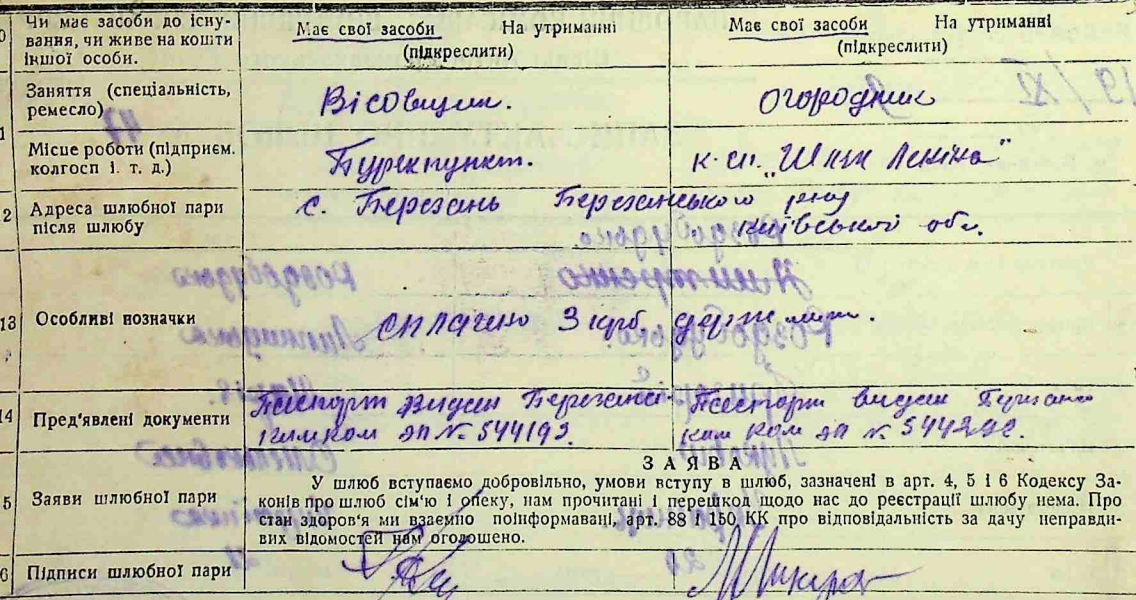 Чи має засоби до існу-
вання, чи живе на кошти
іншої особи.
Має свої засоби На утриманні
(підкреслити)
Має свої засоби На утриманні
(підкреслити)
Заняття (спеціальність,
ремесло)
Вісовщик.
Огородник
Місце роботи (підприєм.
колгосп і. т. д.)
Бурякпункт.
к-сп. "Шлях Леніна"
2 Адреса шлюбної пари
після шлюбу
с. Березань Березанського р-ну
Київської обл.
13 Особливі позначки
сплачено 3 крб. держ мит.
14 Пред'явлені документи
Паспорт видан Березансь-
ким РКМ № 544192.
Паспорт видан Березансь
ким РКМ №
5 Заяви шлюбної пари
ЗАЯВА
У шлюб вступаємо добровільно, умови вступу в шлюб, зазначені в арт. 4, 5 і 6 Кодексу За-
конів про шлюб сім'ю і опеку, нам прочитані і перешкод щодо нас до реєстрації шлюбу нема. Про
стан здоров'я ми взаємно поінформавані, арт. 88 і 150 КК про відповідальність за дачу неправди-
вих відомостей нам оголошено.
6 Підписи шлюбної пари